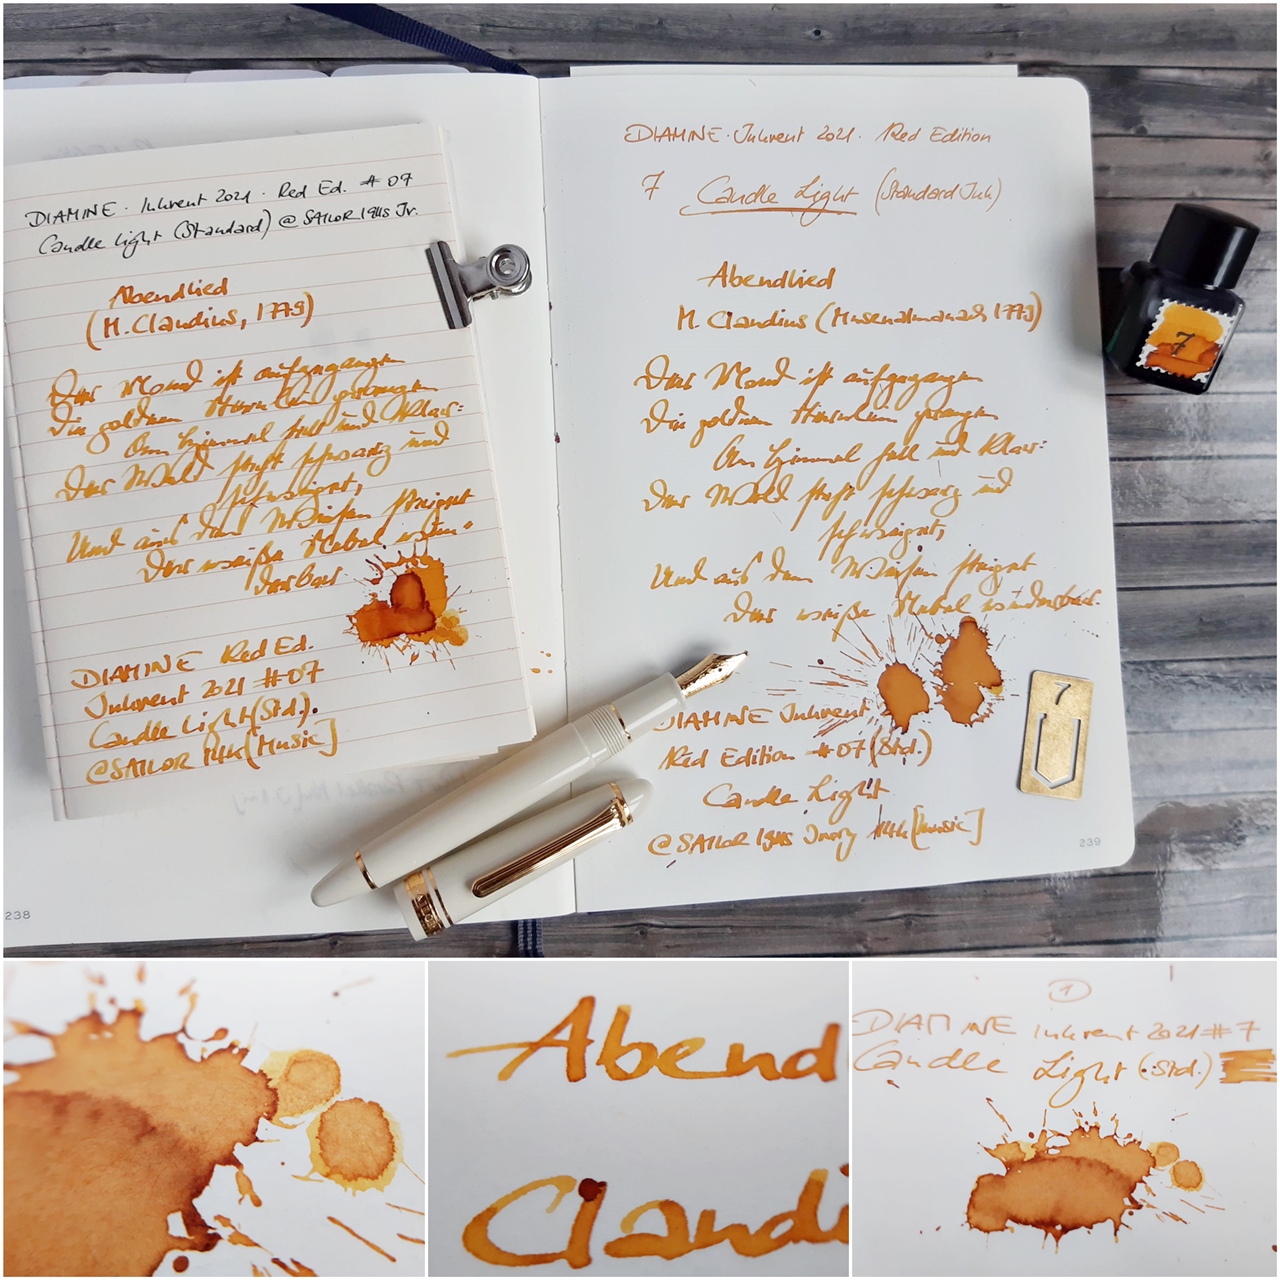 DIAMINE · Inkvent 2021 · Red Ed. # 07
Candle Light (Standard) @ SAILOR 1911s Jr.
Abendlied
(M. Claudius, 1779)
Der Mond ist aufgegangen
Die goldnen Sternlein prangen
Am Himmel hell und klar:
Der Wald steht schwarz und
schweiget,
Und aus den Wiesen steiget
Der weiße Nebel wun-
derbar
DIAMINE Red Ed.
Inkvent 2021 #07
Candle Light (Std.).
@SAILOR 14k [Music]
238
DIAMINE · Inkvent 2021 · Red Edition
7 Candle Light (Standard Ink)
Abendlied
M. Claudius (Musenalmanach 1779)
Der Mond ist aufgegangen
Die goldnen Sternlein prangen
Am Himmel hell und klar:
Der Wald steht schwarz und
schweiget,
Und aus den Wiesen steiget
Der weiße Nebel wunderbar.
DIAMINE Inkvent
Red Edition #07 (Std.)
Candle Light
@ SAILOR 1911s Ivory 14k [Music]
239
7
7
Abend
Claudi
1
DIAMINE Inkvent 2021 # 7
Candle Light (Std.)